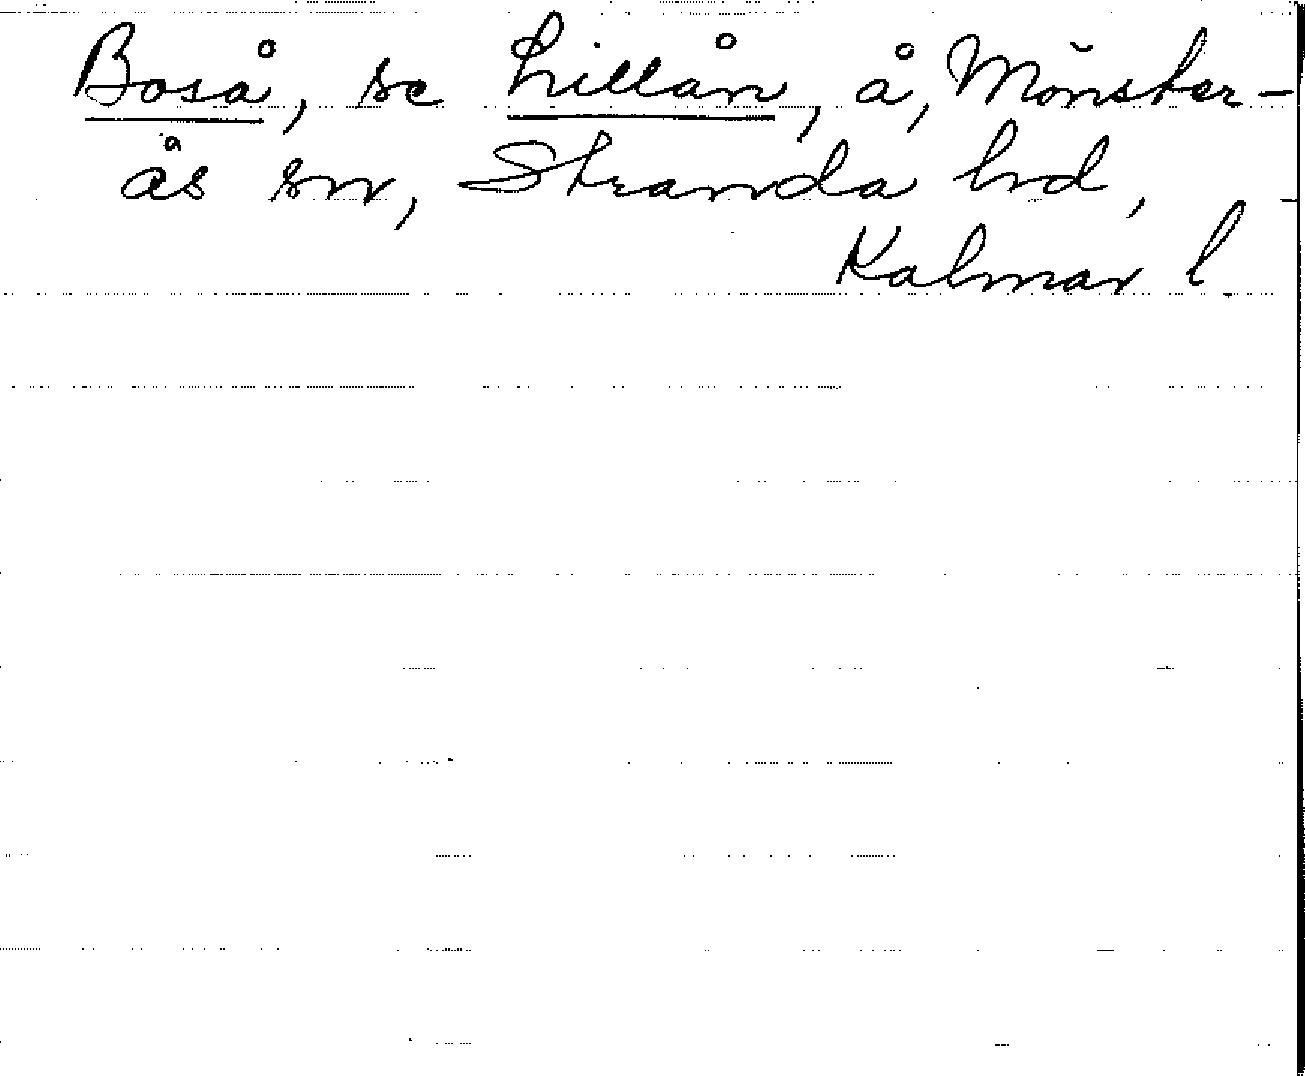 Boså, se Lillån, å, Mönster-
ås sn, Stranda hd,
Kalmar l.